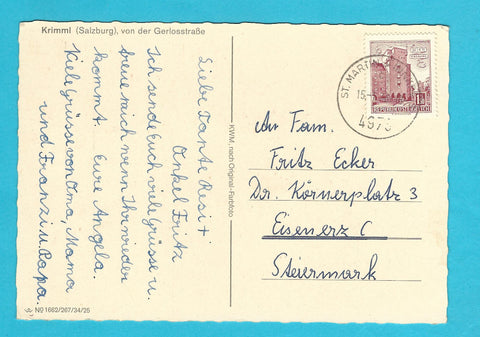 Krimml (Salzburg), von der Gerlosstraße
Liebe Tante Resi +
Onkel Fritz
Ich sende Euch viele Grüsse u.
freue mich wenn Ihr wieder
kommt. Eure Angela.
Viele Grüsse von Oma, Mama
und Franzi u. Papa.
KWM, nach Original-Farbfoto
Nº 1662/267/34/25
ST. MARTIN
15.
REPUBLIK ÖSTERREICH
An Fam.
Fritz Ecker
Dr. Körnerplatz 3
Eisenerz
Steiermark